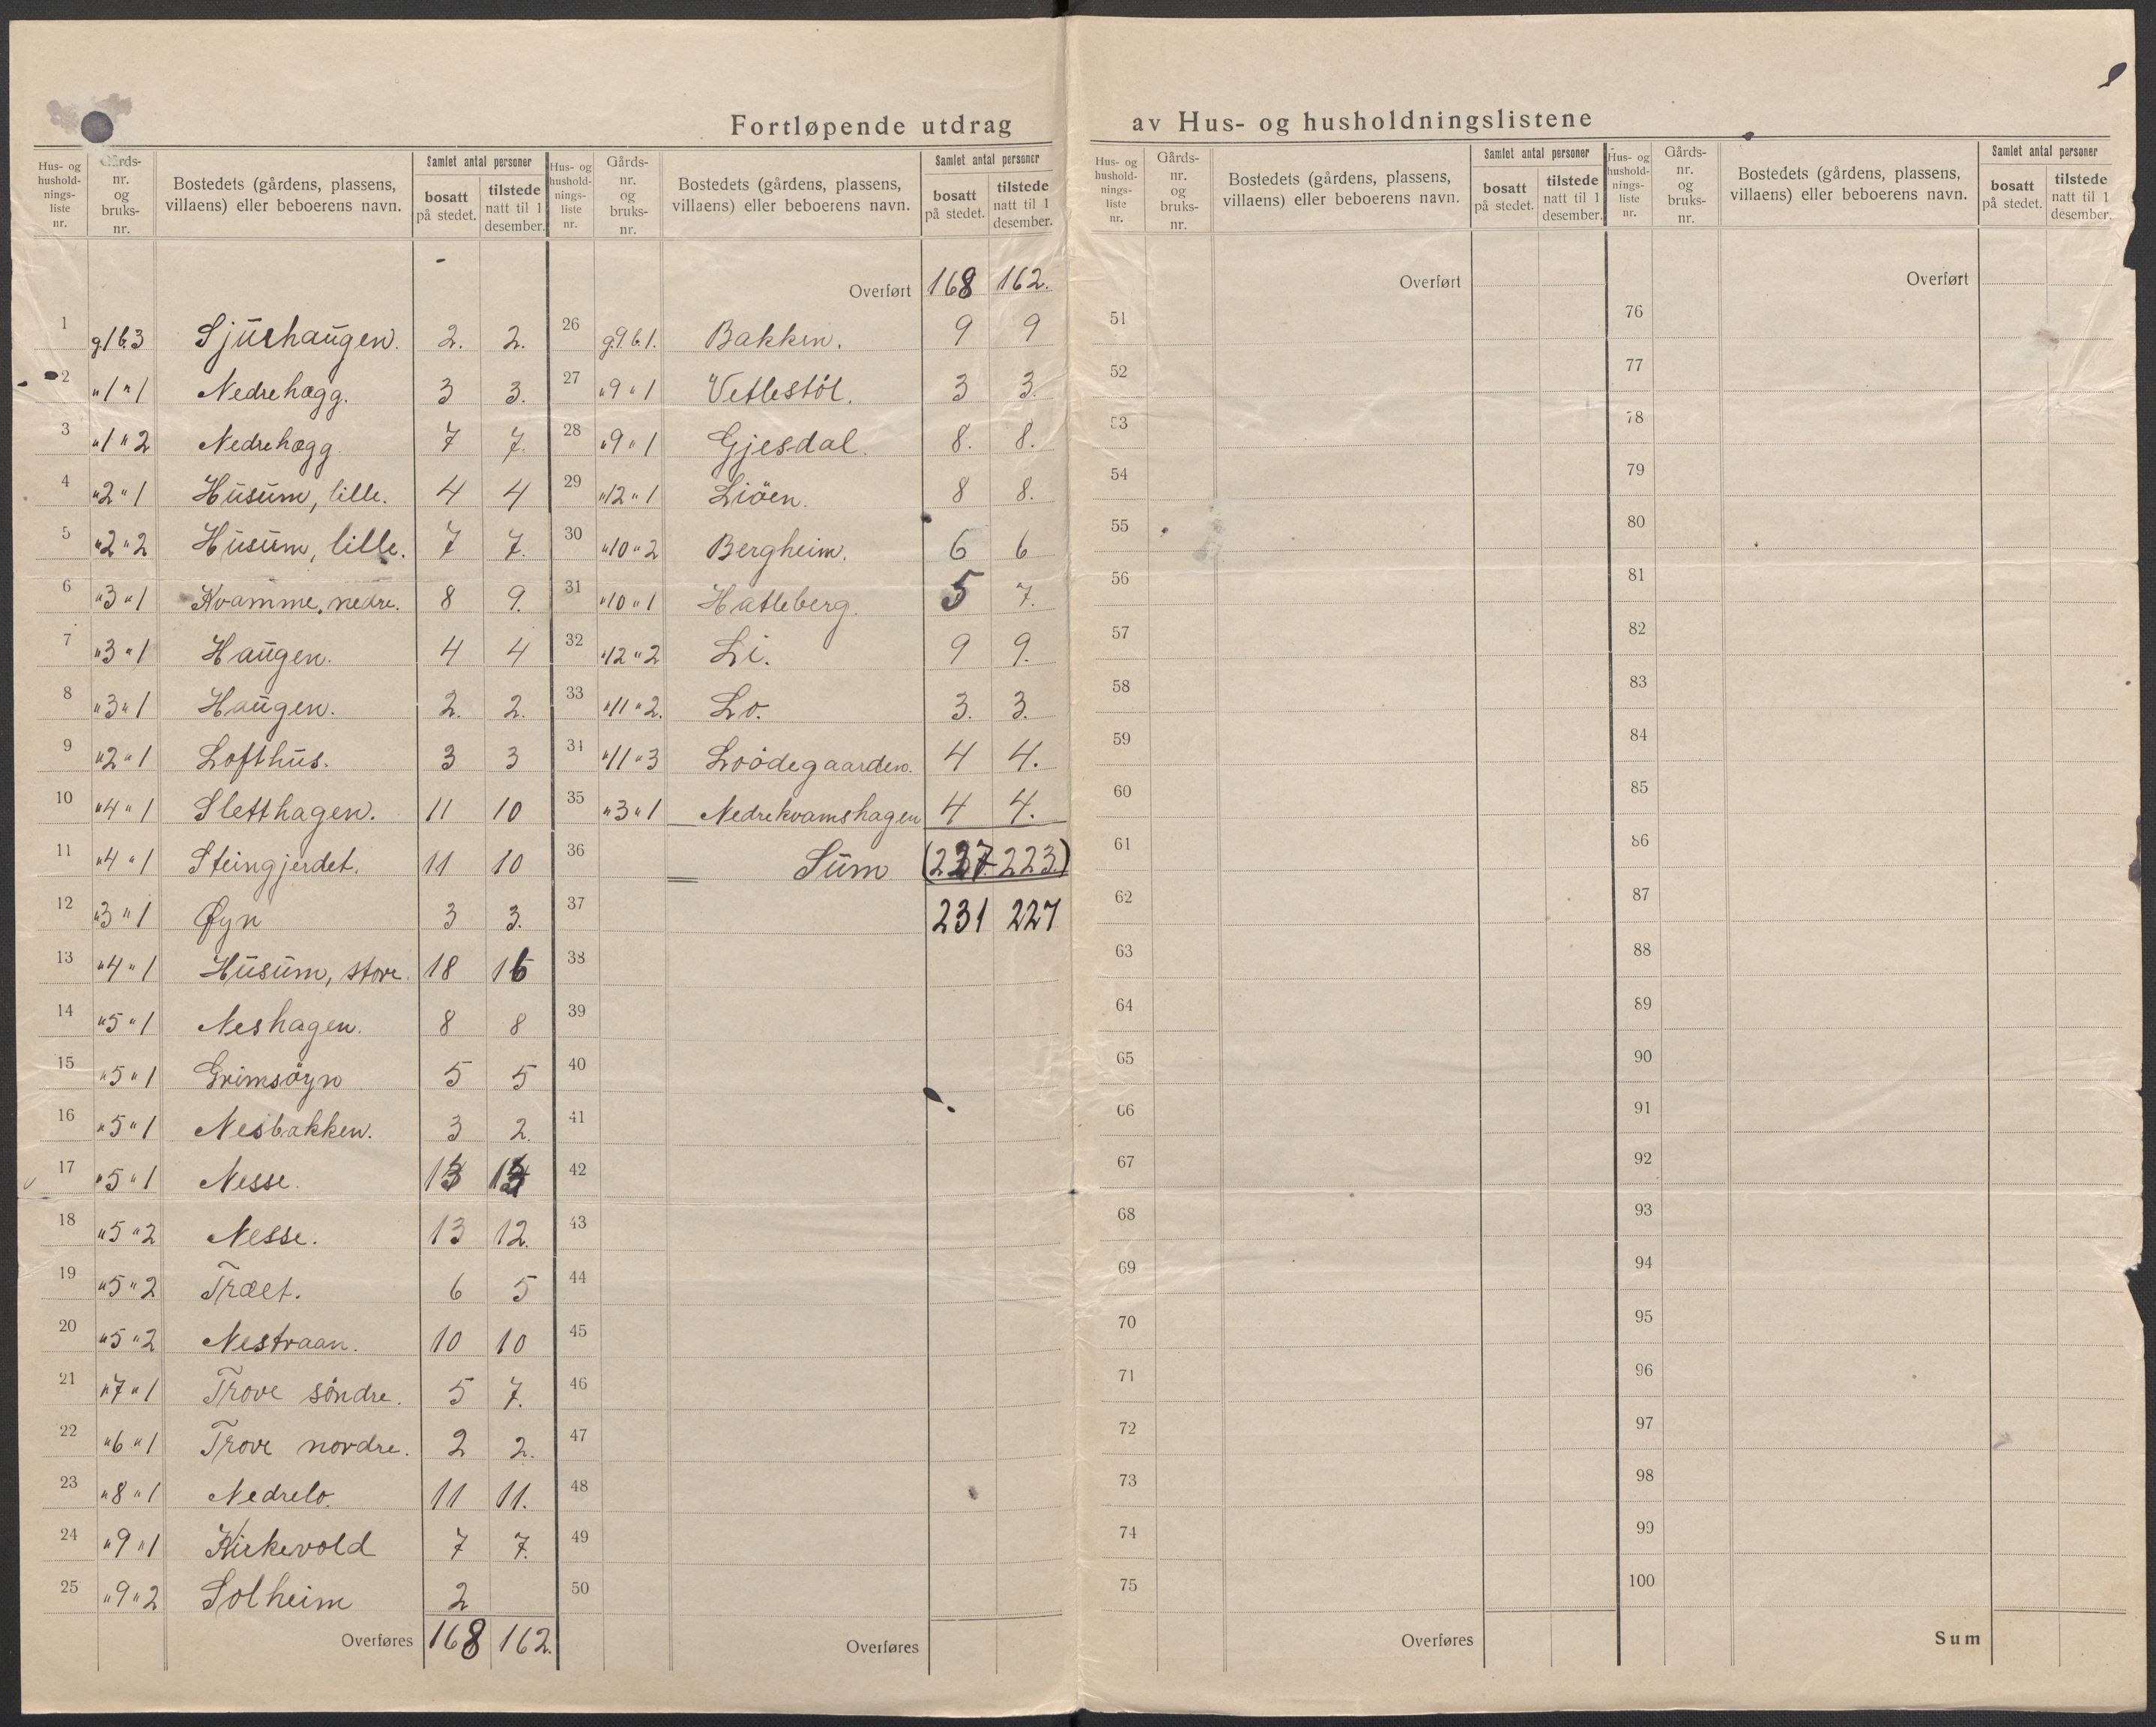 Fortløpende utdrag av Hus- og husholdningslistene
Hus- og husholdningsliste nr. | Gårds-nr. og bruks-nr. | Bostedets (gårdens, plassens, villaens) eller beboerens navn. | Samlet antal personer | bosatt på stedet. | tilstede natt til 1 desember.
1 g.1 b.3 Sjurhaugen. 2. 2.
2 "1 "1 Nedrehægg. 3 3.
3 "1 "2 Nedrehægg. 7 7.
4 "2 "1 Husum, lille. 4 4
5 "2 "2 Husum, lille. 7 7.
6 "3 "1 Kvamme, nedre. 8 9.
7 "3 "1 Haugen. 4 4
8 "3 "1 Haugen. 2. 2.
9 "2 "1 Lofthus. 3 3
10 "4 "1 Sletthagen. 11 10
11 "4 "1 Steingjerdet. 11 10
12 "3 "1 Øyn 3 3.
13 "4 "1 Husum, store. 18 16
14 "5 "1 Neshagen. 8 8
15 "5 "1 Grimsöyn 5 5
16 "5 "1 Nesbakken. 3 2.
17 "5 "1 Nesse.
18 "5 "2 Nesse. 13 12.
19 "5 "2 Træet. 6 5
20 "5 "2 Nestraan. 10 10
21 "7 "1 Trove söndre. 5 7.
22 "6 "1 Trove nordre. 2 2.
23 "8 "1 Nedrelo. 11 11.
24 "9 "1 Kirkevold 7 7.
25 "9 "2 Solheim 2
Overføres 168 162.
Hus- og husholdningsliste nr. | Gårds-nr. og bruks-nr. | Bostedets (gårdens, plassens, villaens) eller beboerens navn. | Samlet antal personer | bosatt på stedet. | tilstede natt til 1 desember.
Overført 168 162.
26 g.9. b.1. Bakken. 9 9
27 "9 "1 Vetlestöl. 3 3.
28 "9 "1 Gjesdal. 8. 8.
29 "12 "1 Liöen. 8 8.
30 "10 "2 Bergheim. 6 6
31 "10 "1 Hatleberg. 5 7.
32 "12 "2 Li. 9 9.
33 "11 "2. Lo. 3. 3.
34 "11 "3 Loödegaarden. 4 4.
35 "3 "1 Nedrekvamshagen 4 4.
36 Sum (237 223)
37 231 227
38
39
40
41
42
43
44
45
46
47
48
49
50
Overføres
Hus- og husholdningsliste nr. | Gårds-nr. og bruks-nr. | Bostedets (gårdens, plassens, villaens) eller beboerens navn. | Samlet antal personer | bosatt på stedet. | tilstede natt til 1 desember.
Overført
51
52
53
54
55
56
57
58
59
60
61
62
63
64
65
66
67
68
69
70
71
72
73
74
75
Overføres
Hus- og husholdningsliste nr. | Gårds-nr. og bruks-nr. | Bostedets (gårdens, plassens, villaens) eller beboerens navn. | Samlet antal personer | bosatt på stedet. | tilstede natt til 1 desember.
Overført
76
77
78
79
80
81
82
83
84
85
86
87
88
89
90
91
92
93
94
95
96
97
98
99
100
Sum